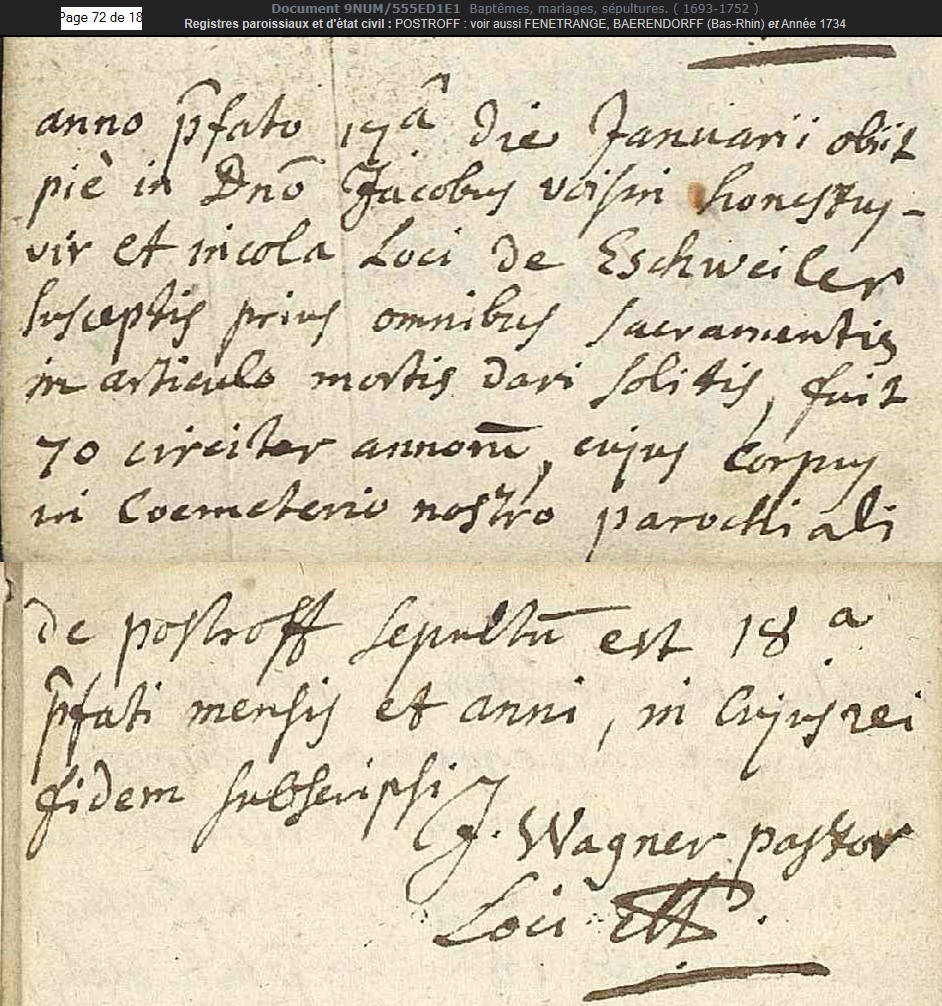 Document 9NUM/555ED1E1 Baptêmes, mariages, sépultures. ( 1693-1752 )
Page 72 de 18
Registres paroissiaux et d'état civil : POSTROFF : voir aussi FENETRANGE, BAERENDORFF (Bas-Rhin) et Année 1734
anno p̄fato 17â die Januarii obiit
piè in Dnō Jacobus voisin honestus-
vir et incola Loci de Eschweiler
susceptis prius omnibus sacramentis
in articulo mortis dari solitis, fuit
70 circiter annorū, cujus Corpus
in Coemeterio nostro parochiali
de postroff sepultū est 18 a
p̄fati mensis et anni, in Cujus rei
fidem subscripsi
J. Wagner pastor
Loci